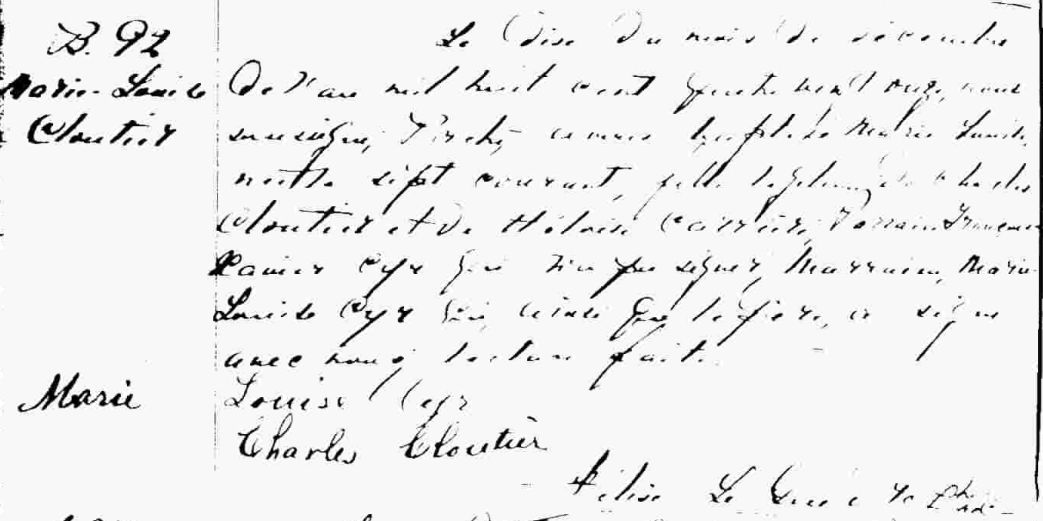 B. 92
Marie-Louise
Cloutier
Le dix du mois de décembre
de l'an mil huit cent quatre vingt onze, nous
soussigné, Prêtre, avons baptisé Marie Louise,
née le sept courant, fille légitime de Charles
Cloutier et de Héloïse Carrière, Parrain, François
Xavier Cyr qui n'a pu signer, Marraine, Marie
Louise Cyr qui, ainsi que le père, a signé
avec nous, lecture faite.
Marie Louise Cyr
Charles Cloutier